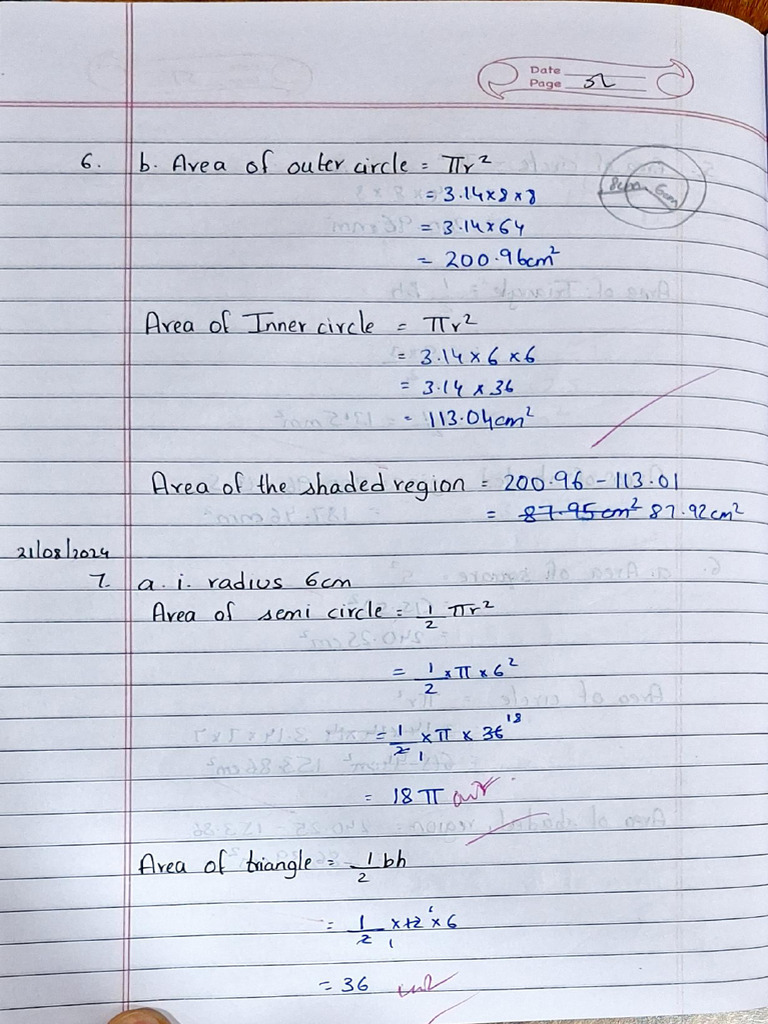 Date
Page 52
6. b. Area of outer circle = πr²
= 3.14×8×8
8cm 6cm
= 3.14×64
= 200.96cm²
Area of Inner circle = πr²
= 3.14×6×6
= 3.14×36
= 113.04cm²
Area of the shaded region = 200.96-113.01
= 87.95cm² 87.92cm²
21/08/2024
7. a. i. radius 6cm
Area of semi circle = 1/2 πr²
= 1/2 × π × 6²
= 1/2 1 × π × 36 18
= 18π cm²
Area of triangle = 1/2 bh
= 1/2 1 × 12 6 × 6
= 36 cm²